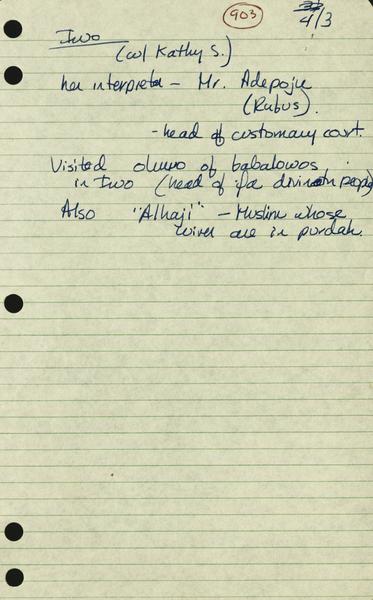 903
4/3
Iwo
(w/ Kathy S.)
her interpreter - Mr. Adepoju
(Rubus).
- head of customary court.
Visited oluwo of babalowos
in Iwo (head of ifa divination people)
Also "Alhaji" - Muslim whose
wives are in purdah.